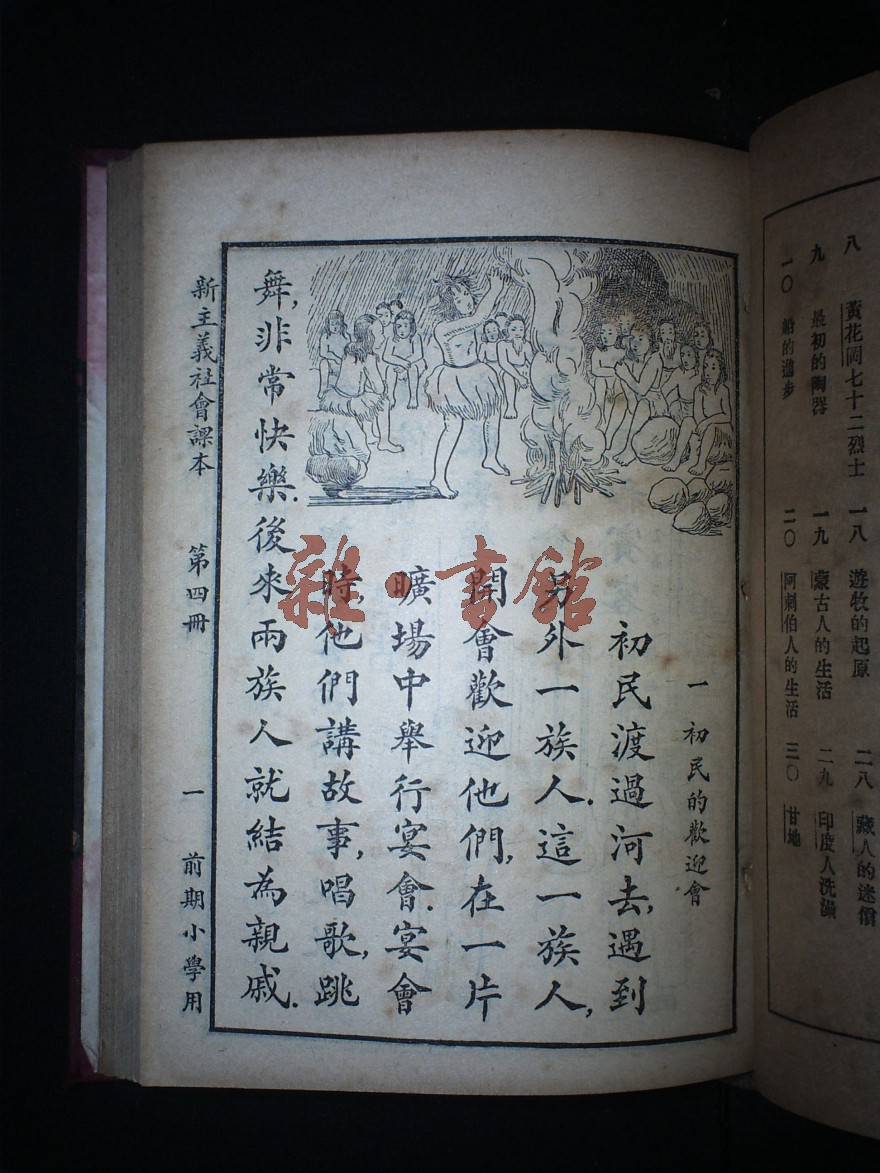 八 黃花岡七十二烈士 一八 遊牧的起原 二八 藏人的迷信
九 最初的陶器 一九 蒙古人的生活 二九 印度人洗澡
一〇 船的進步 二〇 阿剌伯人的生活 三〇 甘地
一 初民的歡迎會
初民渡過河去,遇到
另外一族人.這一族人,
開會歡迎他們,在一片
曠場中舉行宴會.宴會
時他們講故事,唱歌,跳
舞,非常快樂.後來兩族人就結為親戚.
新主義社會課本 第四冊 一 前期小學用
雜·書館